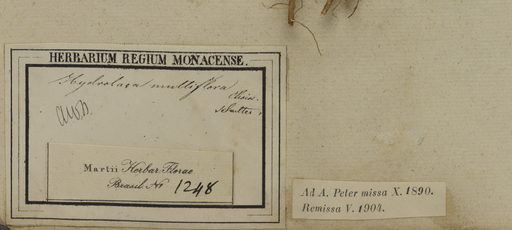 HERBARIUM REGIUM MONACENSE.
multiflora
Schultes.
Martii Herbar. Florae
Brasil. No 1248
Ad A. Peter missa X. 1890.
Remissa V. 1904.